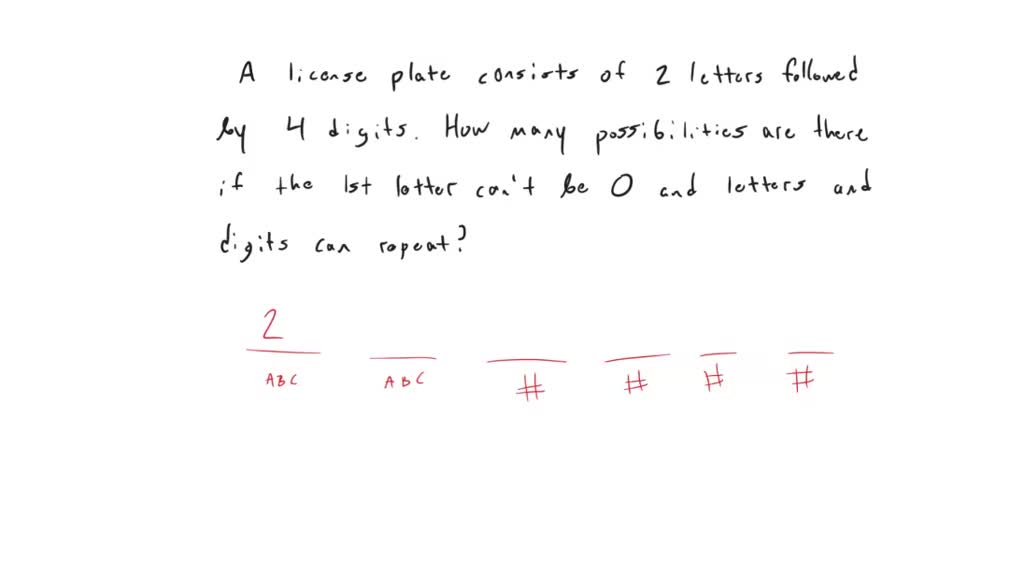 A license plate consists of 2 letters followed
by 4 digits. How many possibilities are there
if the 1st letter can't be O and letters and
digits can repeat?
2
ABC ABC # # # #